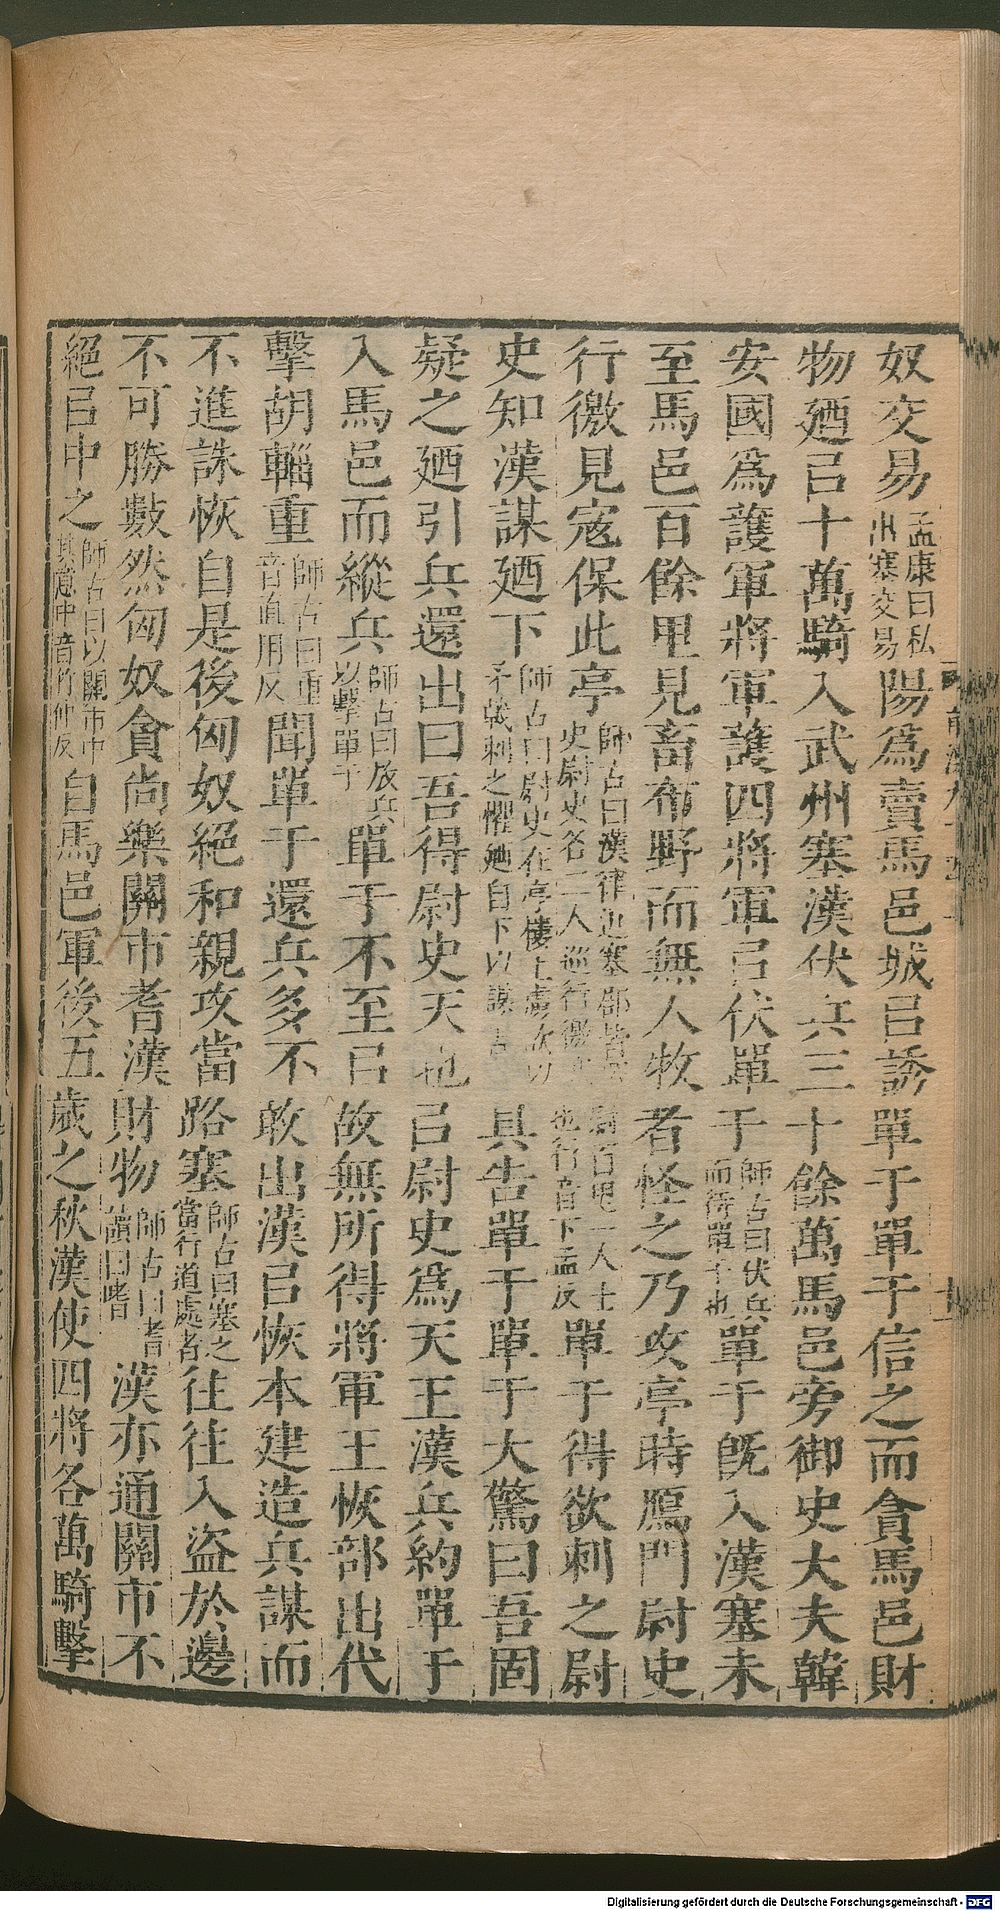 奴交易孟康曰私出塞交易陽爲賣馬邑城㠯誘單于單于信之而貪馬邑財
物廼㠯十萬騎入武州塞漢伏兵三十餘萬馬邑旁御史大夫韓
安國爲護軍將軍護四將軍㠯伏單于師古曰伏兵而待單于也單于旣入漢塞未
至馬邑百餘里見畜布野而無人牧者怪之乃攻亭時鴈門尉史
行徼見寇保此亭師古曰漢律近塞郡皆置尉百里一人士史尉史各二人巡行徼塞也行音下孟反單于得欲刺之尉
史知漢謀廼下師古曰尉史在亭樓上虜欲以矛戟刺之懼廼自下以謀告具告單于單于大驚曰吾固
疑之廼引兵還出曰吾得尉史天也㠯尉史爲天王漢兵約單于
入馬邑而縱兵師古曰放兵以擊單于單于不至㠯故無所得將軍王恢部出代
擊胡輜重師古曰重音直用反聞單于還兵多不敢出漢㠯恢本建造兵謀而
不進誅恢自是後匈奴絕和親攻當路塞師古曰塞之當行道處者往往入盜於邊
不可勝數然匈奴貪尚樂關市耆漢財物師古曰耆讀曰嗜漢亦通關市不
絕㠯中之師古曰以關市中其意中音竹仲反自馬邑軍後五歲之秋漢使四將各萬騎擊
Digitalisierung gefördert durch die Deutsche Forschungsgemeinschaft - DFG